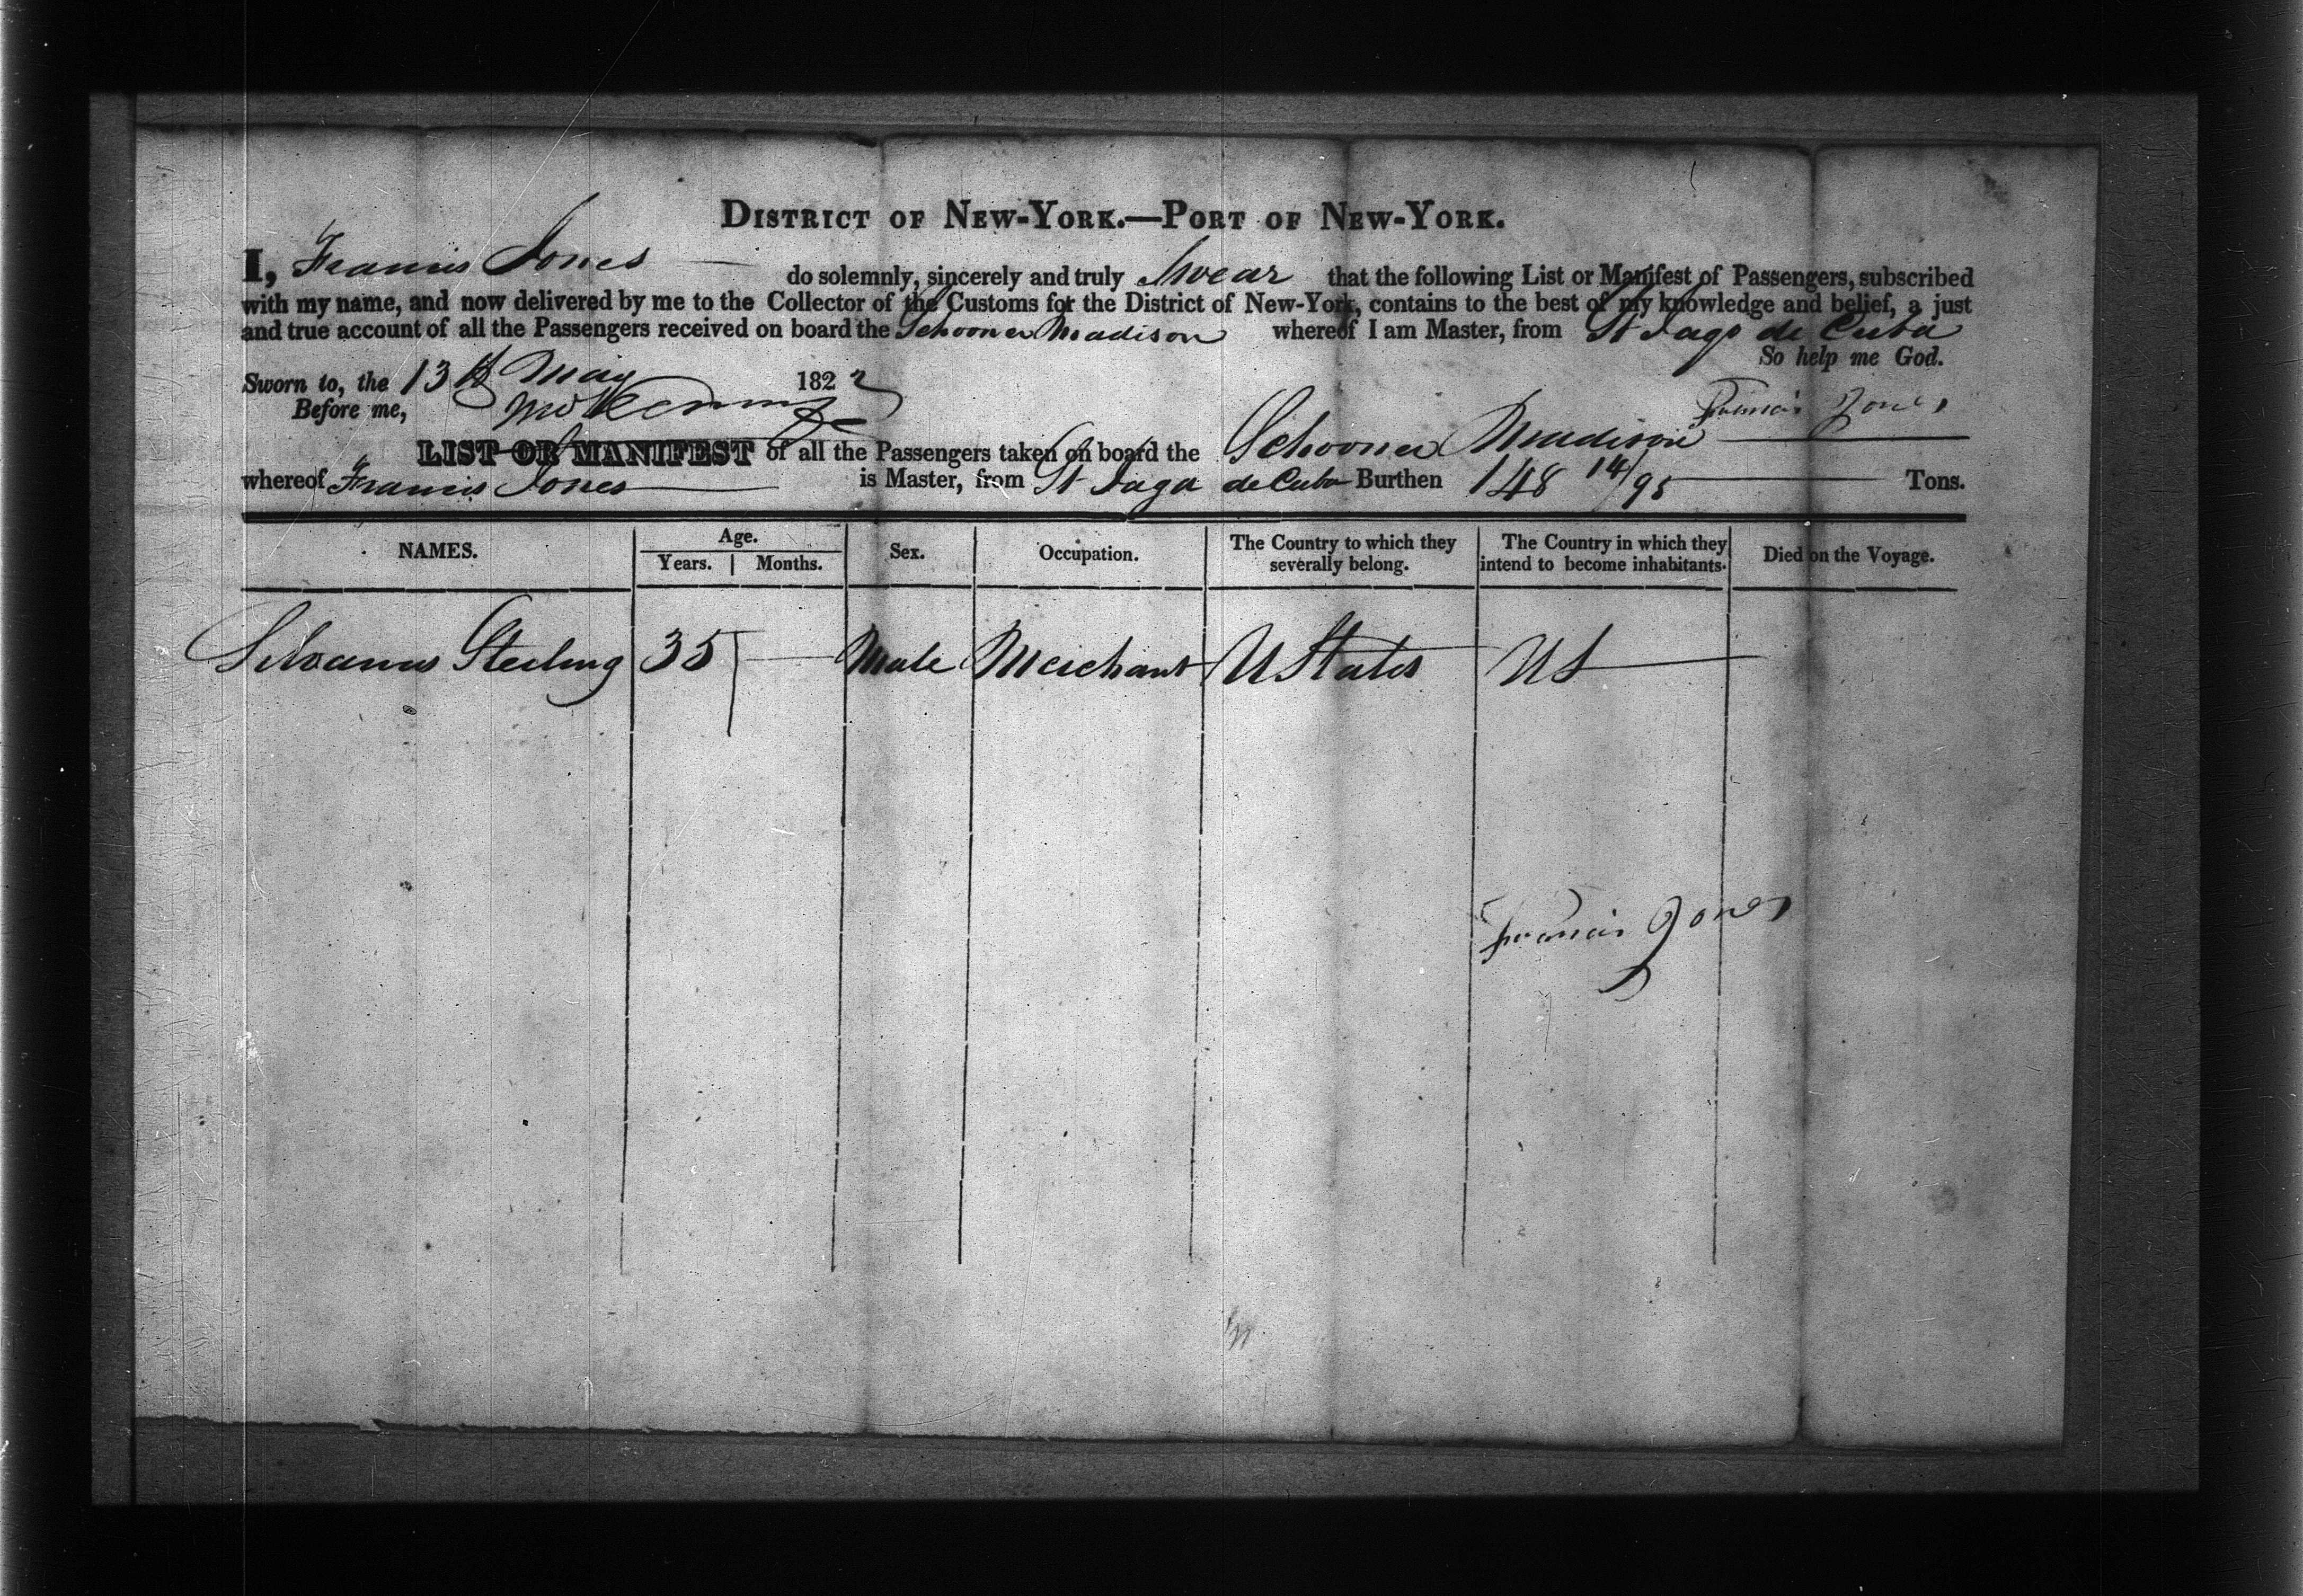 DISTRICT OF NEW-YORK.—PORT OF NEW-YORK.
I, Francis Jones do solemnly, sincerely and truly Swear that the following List or Manifest of Passengers, subscribed
with my name, and now delivered by me to the Collector of the Customs for the District of New-York, contains to the best of my knowledge and belief, a just
and true account of all the Passengers received on board the Schooner Madison whereof I am Master, from St Jago de Cuba
So help me God.
Sworn to, the 13th May 1822
Before me,
Francis Jones
LIST OR MANIFEST of all the Passengers taken on board the Schooner Madison
whereof Francis Jones is Master, from St Jago de Cuba Burthen 148 14/95 Tons.
NAMES. Age. Years. Months. Sex. Occupation. The Country to which they severally belong. The Country in which they intend to become inhabitants. Died on the Voyage.
Silvanus Sterling 35 — Male Merchant U States U S
Francis Jones